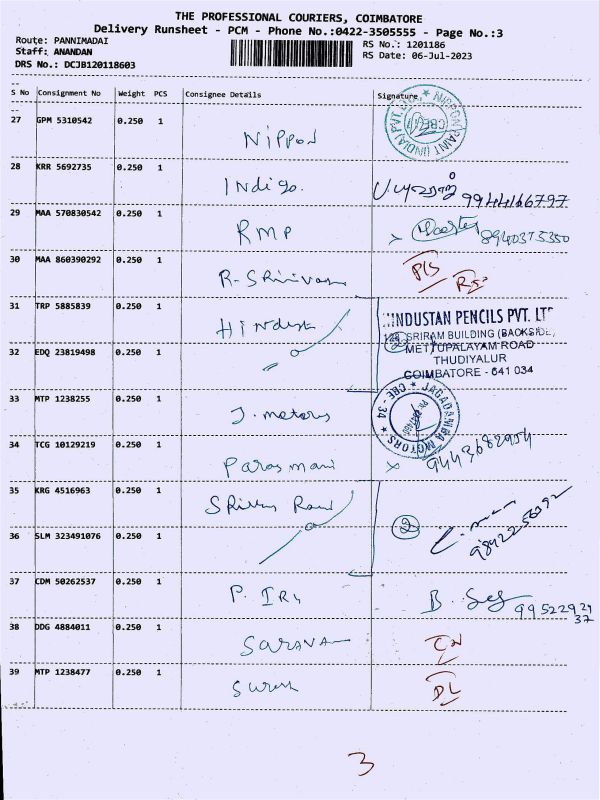 THE PROFESSIONAL COURIERS, COIMBATORE
Delivery Runsheet - PCM - Phone No.:0422-3505555 - Page No.:3
Route: PANNIMADAI
Staff: ANANDAN
DRS No.: DCJB120118603
RS No.: 1201186
RS Date: 06-Jul-2023
S No Consignment No Weight PCS Consignee Details Signature
27 GPM 5310542 0.250 1 Nippon
NIPPON PAINT (INDIA) PVT. LTD. CBE
28 KRR 5692735 0.250 1 Indigo 9944166797
29 MAA 570830542 0.250 1 RMP 8940375350
30 MAA 860390292 0.250 1 R-Srinivasan
31 TRP 5885839 0.250 1 Hindust
HINDUSTAN PENCILS PVT. LT
SRIRAM BUILDING (BACKSIDE,
METTUPALAYAM ROAD
THUDIYALUR
COIMBATORE - 641 034
32 EDQ 23819498 0.250 1
33 MTP 1238255 0.250 1 J. motors
JAGADAMBA MOTORS CBE - 34
34 TCG 10129219 0.250 1 Parasmani 9443682954
35 KRG 4516963 0.250 1
36 SLM 323491076 0.250 1 2
37 CDM 50262537 0.250 1 B. 99522929
37
38 DDG 4884011 0.250 1 Saravan
39 MTP 1238477 0.250 1 Suresh DL
3